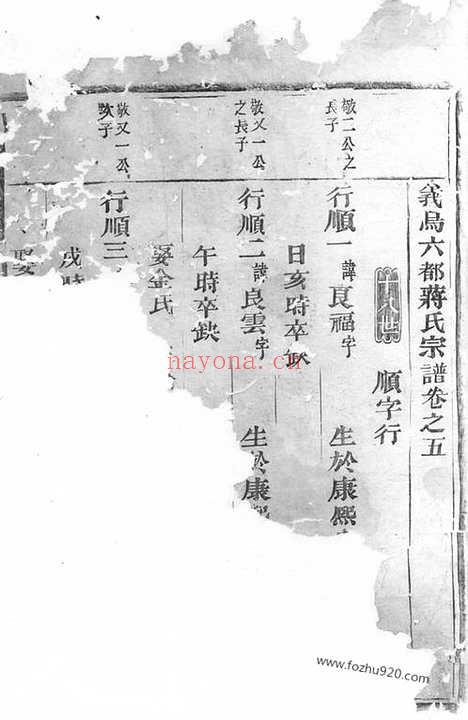 義烏六都蔣氏宗譜卷之五
十八世
順字行
敬二公之
長子
行順一 諱良福字 生於康熙
日亥時卒缺
敬又一公
之長子
行順二 諱良雲字 生於康熙
午時卒缺
娶金氏
敬又一公
次子
行順三
戌時
娶
nayona.cn
www.fozhu920.com